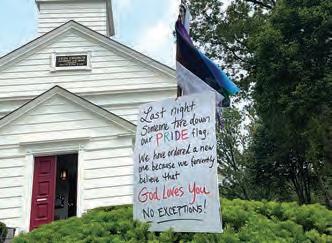 Last night
Someone tore down
our PRIDE flag.
We have ordered a new
one because we fervently
believe that
God Loves You
NO EXCEPTIONS!